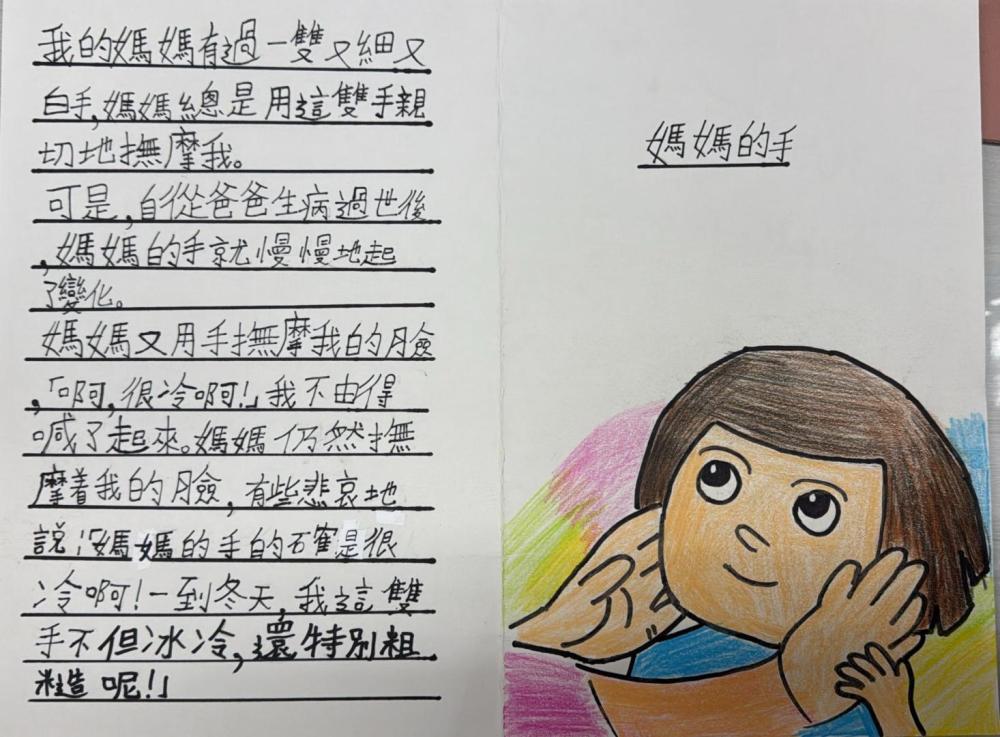 我的媽媽有過一雙又細又
白手,媽媽總是用這雙手親
切地撫摩我。
可是,自從爸爸生病過世後
,媽媽的手就慢慢地起
了變化。
媽媽又用手撫摩我的臉
,「啊,很冷啊!」我不由得
喊了起來。媽媽仍然撫
摩着我的臉,有些悲哀地
說:「媽媽的手的確是很
冷啊!一到冬天,我這雙
手不但冰冷,還特別粗
糙呢!」
媽媽的手